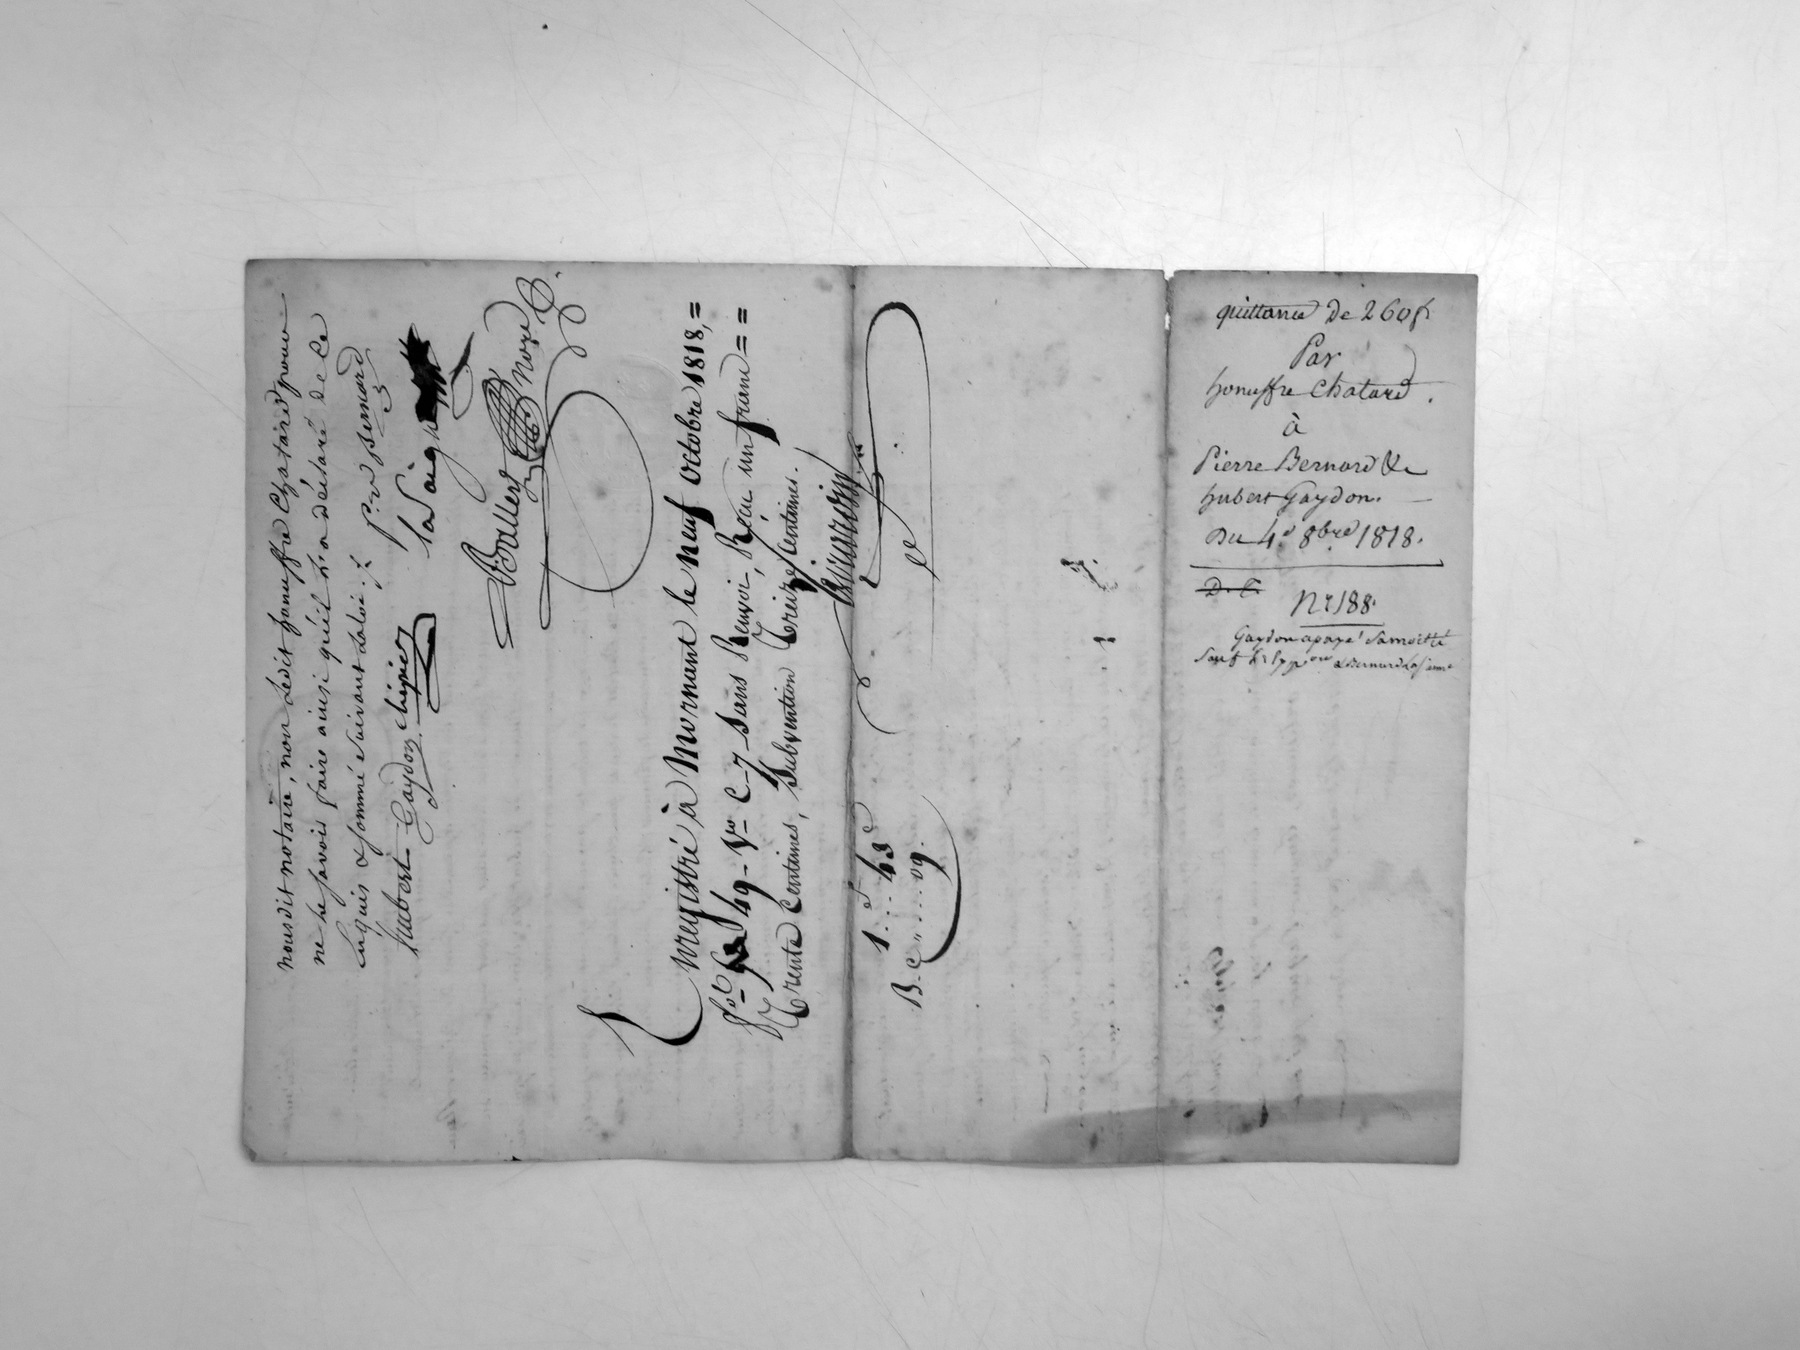 nousdit notaire, non Ledit honuffre Chatard pour
ne le savoir faire ainsi qu'il n'a déclaré de ce
Enquis & sommé suivant la loi ./.
P.re Bernard
hubert Gaydon chipier
la Saigne
Ballery Nore
Enregistré à Mornant le neuf octobre 1818, =
fol 49 - Vo C. 7 Sans Renvoi, Reçu un franc = =
Trente Centimes, Subvention Treize Centimes.
1.. 43
B. C ..... 09.
quittance De 260f
Par
honuffre Chatard.
à
Pierre Bernard &
hubert Gaydon.
Du 4 8bre 1818.
D. E.
No 188.
Gaydon a payé Samoitié